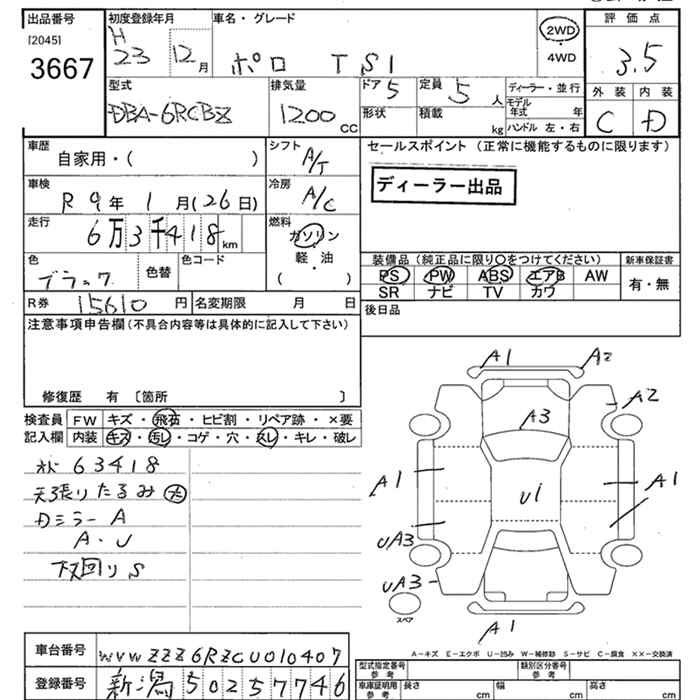 出品番号
[2045]
3667
初度登録年月
H 23 12月
車名・グレード
ポロ TSI
2WD
・
4WD
評価点
3.5
外装 内装
C D
型式
DBA-6RCBZ
排気量
1200 CC
ドア 5
形状
定員 5 人
積載 kg
ディーラー・並行
モデル年式 年
ハンドル 左・右
車歴
自家用・( )
シフト
A/T
車検
R9年 1月(26日)
冷房
A/C
走行
6万3千418km
燃料
ガソリン
軽・油
( )
色
ブラック
色替
色コード
R券 15610円
名変期限 月 日
セールスポイント (正常に機能するものに限ります)
ディーラー出品
装備品 (純正品に限り○をつけてください)
PS PW ABS エアB AW
SR ナビ TV カワ
新車保証書
有・無
後日品
注意事項申告欄(不具合内容等は具体的に記入して下さい)
修復歴 有 〔箇所 〕
検査員記入欄
FW キズ・飛石・ヒビ割・リペア跡・×要
内装 キズ・汚レ・コゲ・穴・スレ・キレ・破レ
メ 63418
天張りたるみ 大
Dミラー A
A・U
下回り S
A1
A2
A2
A3
A1
A1
U1
UA3
UA3
A1
スペア
A-キズ E-エクボ U-凹み W-補修跡 S-サビ C-腐食 XX-交換済
車台番号 WVWZZZ6RZCU010407
登録番号 新潟 502 57746
型式指定番号 参考
類別区分番号 参考
車庫証明用 参考
長さ cm 幅 cm 高さ cm